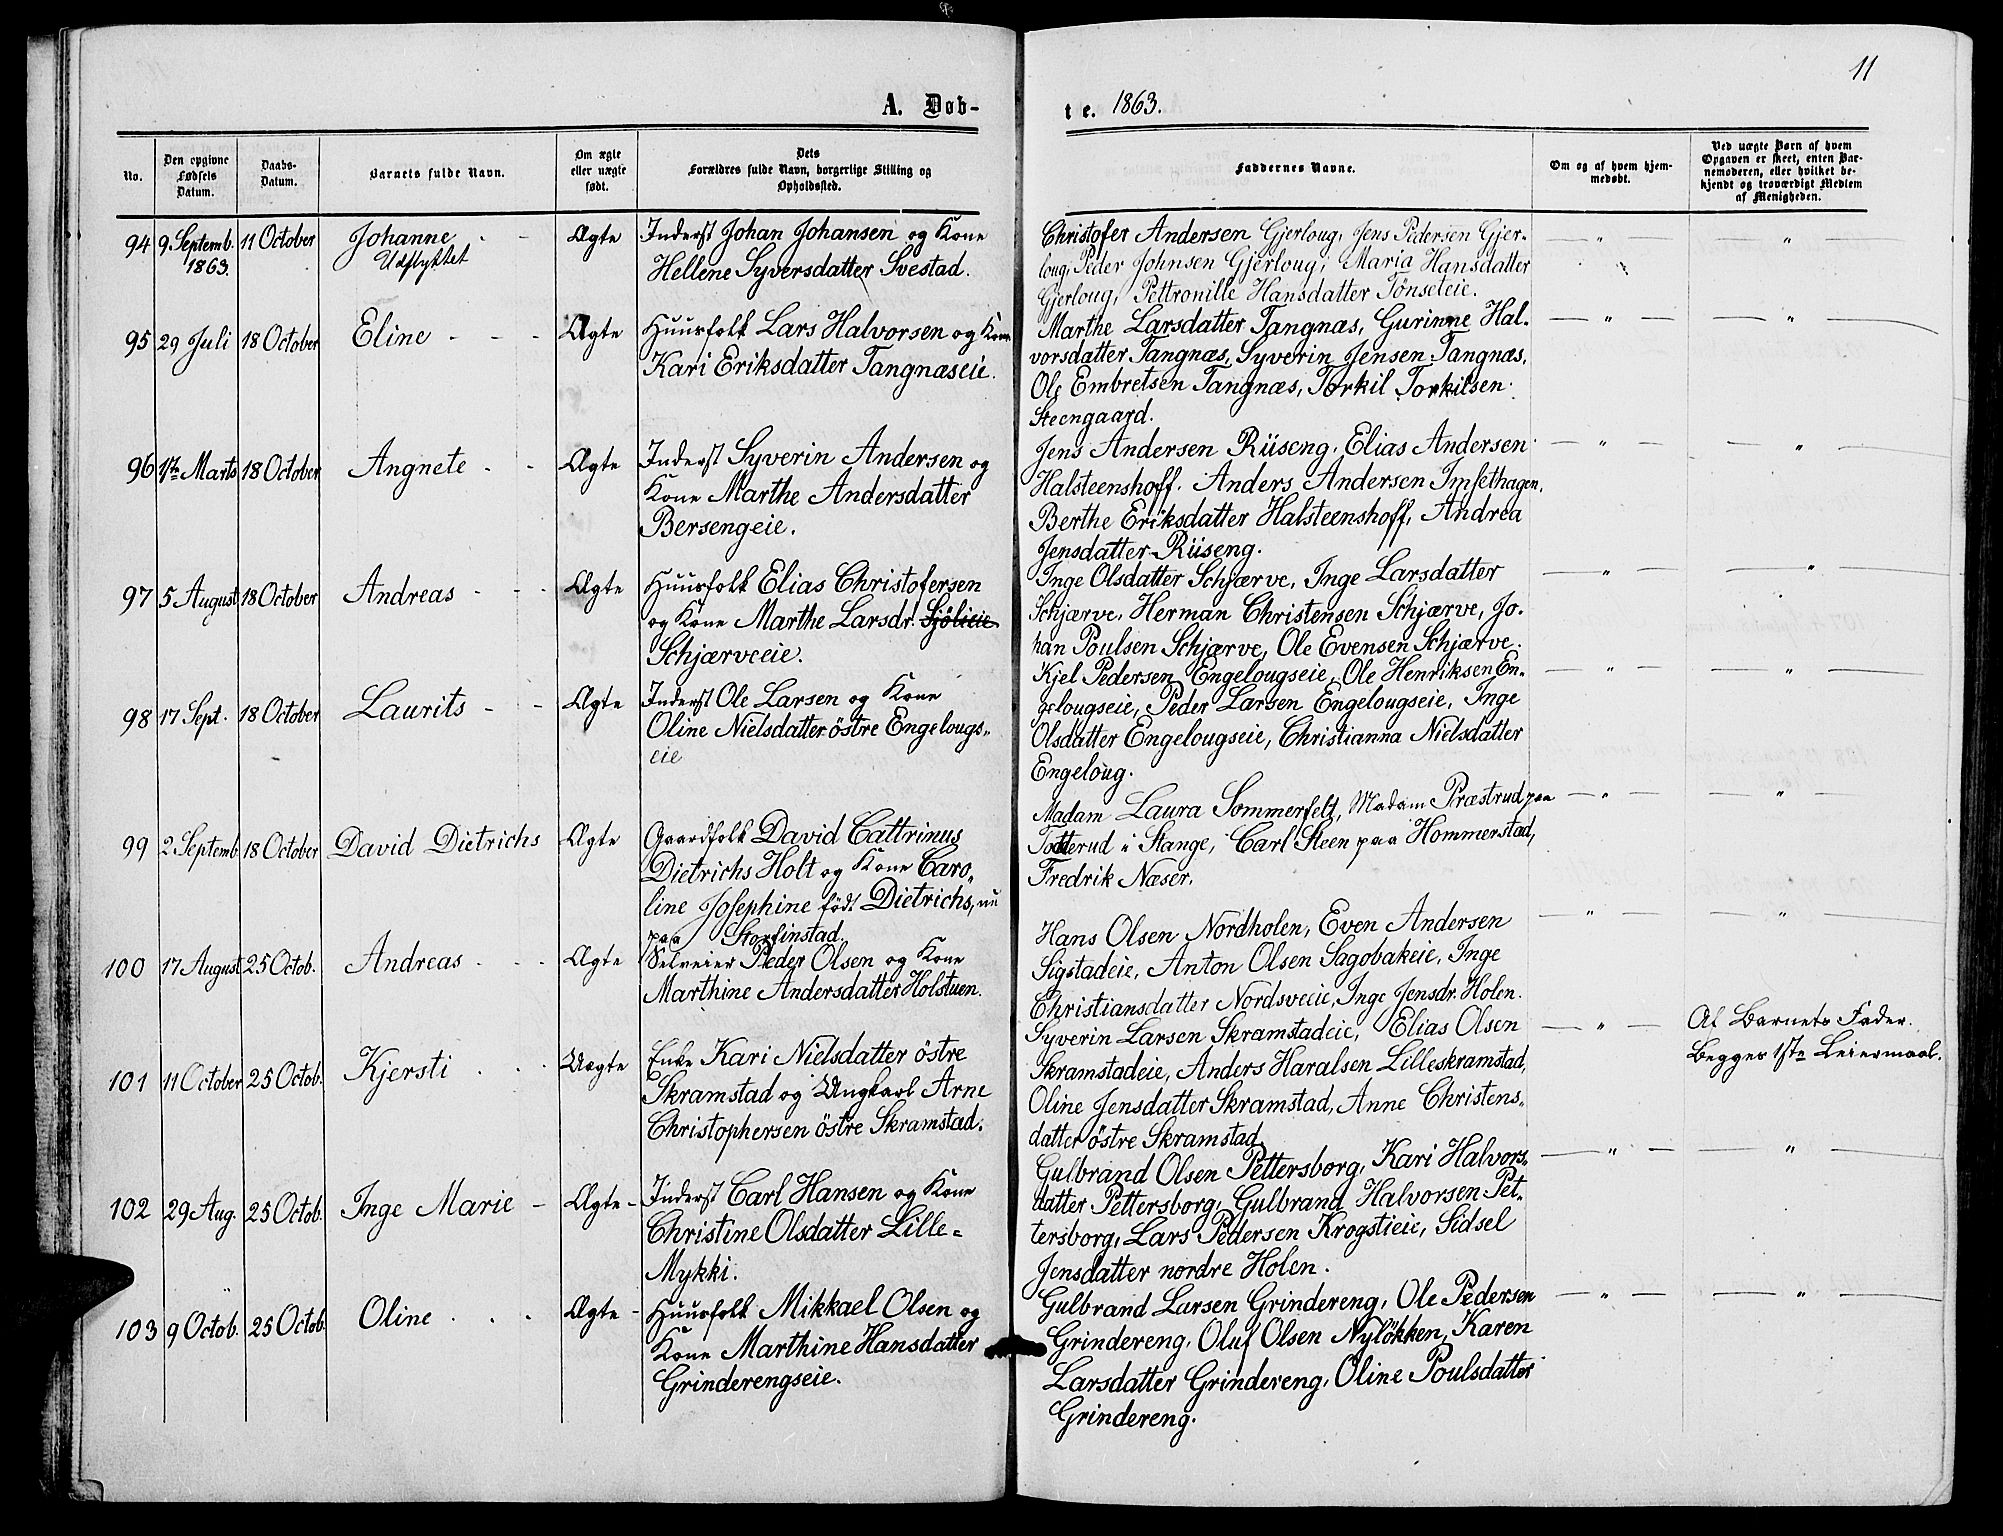 11
A. Døb-
te. 1863.
No.
Den opgivne Fødsels Datum.
Daabs-Datum.
Barnets fulde Navn.
Om ægte eller uægte født.
Dets Forældres fulde Navn, borgerlige Stilling og Opholdssted.
Faddernes Navne.
Om og af hvem hjem-medøbt.
Ved uægte Børn af hvem Opgaven er skeet, enten Bar-nemoderen, eller hvilket be-kjendt og troværdigt Medlem af Menigheden.
94 9 Septemb. 1863. 11 October Johanne Udflyttet Ægte
Inderst Johan Johansen og Kone
Hellene Syversdatter Svestad.
Christofer Andersen Gjerloug, Jens Pedersen Gjer-
loug, Peder Johnsen Gjerloug, Maria Hansdatter
Gjerloug, Pettronille Hansdatter Tönseteie.
95 29 Juli 18 October Eline - - - Ægte
Huusfolk Lars Halvorsen og Kone
Kari Eriksdatter Tangnæseie.
Marthe Larsdatter Tangnæs, Gurinne Hal-
vorsdatter Tangnæs, Syverin Jensen Tangnæs,
Ole Embretsen Tangnæs, Torkil Torkilsen
Steengaard.
96 1ste Marts 18 October Angnete - - Ægte
Inderst Syverin Andersen og
Kone Marthe Andersdatter
Bersengeie.
Jens Andersen Riiseng, Elias Andersen
Halsteenshoff. Anders Andersen Imsethagen,
Berthe Eriksdatter Halsteenshoff, Andrea
Jensdatter Riiseng.
97 5 August 18 October Andreas - - - Ægte
Huusfolk Elias Christofersen
og Kone Marthe Larsdr. Sjölieie
Schjærveeie.
Inge Olsdatter Schjærve, Inge Larsdatter
Schjærve, Herman Christensen Schjærve, Jo-
han Poulsen Schjærve, Ole Evensen Schjærve.
98 17 Sept. 18 October Laurits - - Ægte
Inderst Ole Larsen og Kone
Oline Nielsdatter östre Engelougs-
eie
Kjel Pedersen Engelougseie, Ole Henriksen En-
gelougseie, Peder Larsen Engelougseie, Inge
Olsdatter Engelougseie, Christianna Nielsdatter
Engeloug.
99 2 Septemb. 18 October David Dietrichs Ægte
Gaardfolk David Cattrinus
Dietrichs Holt og Kone Caro-
line Josephine født Dietrichs, nu
paa Storfinstad.
Madam Laura Sommerfelt, Madam Præstrud paa
Totterud i Stange, Carl Steen paa Hommerstad,
Fredrik Næser.
100 17 August 25 Octob. Andreas - - - Ægte
Selveier Peder Olsen og Kone
Marthine Andersdatter Holstuen.
Hans Olsen Nordholen, Even Andersen
Sigstadeie, Anton Olsen Sagobakeie, Inge
Christiansdatter Nordsveeie, Inge Jensdr. Holen.
101 11 October 25 Octob. Kjersti . . . Uægte
Enke Kari Nielsdatter östre
Skramstad og Ungkarl Arne
Christophersen östre Skramstad.
Syverin Larsen Skramstadeie, Elias Olsen
Skramstadeie, Anders Haralsen Lilleskramstad,
Oline Jensdatter Skramstad, Anne Christens-
datter östre Skramstad.
Af Barnets Fader.
Begges 1ste Leiermaal.
102 29 Aug. 25 Octob. Inge Marie - Ægte -
Inderst Carl Hansen og Kone
Christine Olsdatter Lille-
Mykki.
Gulbrand Olsen Pettersborg, Kari Halvors-
datter Pettersborg, Gulbrand Halvorsen Pet-
tersborg, Lars Pedersen Krogstieie, Sidsel
Jensdatter nordre Holen.
103 9 Octob. 25 Octob. Oline . . . Ægte -
Huusfolk Mikkael Olsen og
Kone Marthine Hansdatter
Grinderengseie.
Gulbrand Larsen Grindereng, Ole Pedersen
Grindereng, Oluf Olsen Nylökken, Karen
Larsdatter Grindereng, Oline Poulsdatter
Grindereng.